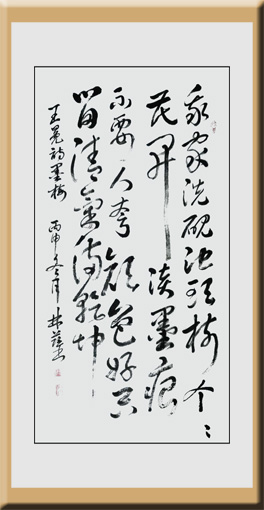 我家洗砚池頭樹个々
花開淡墨痕
不要人夸颜色好只
留清氣滿乾坤
王冕詩墨梅 丙申冬月 林